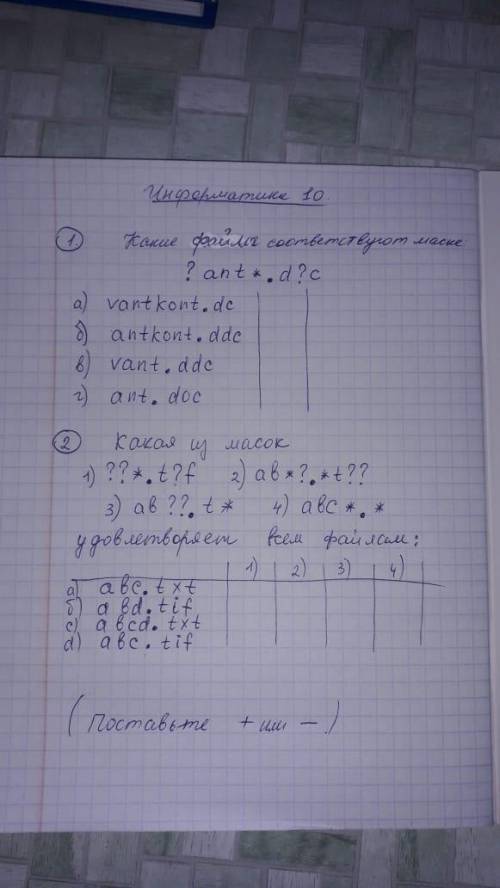 Информатика 10.
1 Какие файлы соответствуют маске
?ant*.d?c
а) vantkont.dc
б) antkont.ddc
в) vant.ddc
г) ant.doc
2 Какая из масок
1) ??*.t?f 2) ab*?.*t??
3) ab??.t* 4) abc*.*
удовлетворяет всем файлам:
1) 2) 3) 4)
а) abc.txt
б) abd.tif
c) abcd.txt
d) abc.tif
(Поставьте + или -)